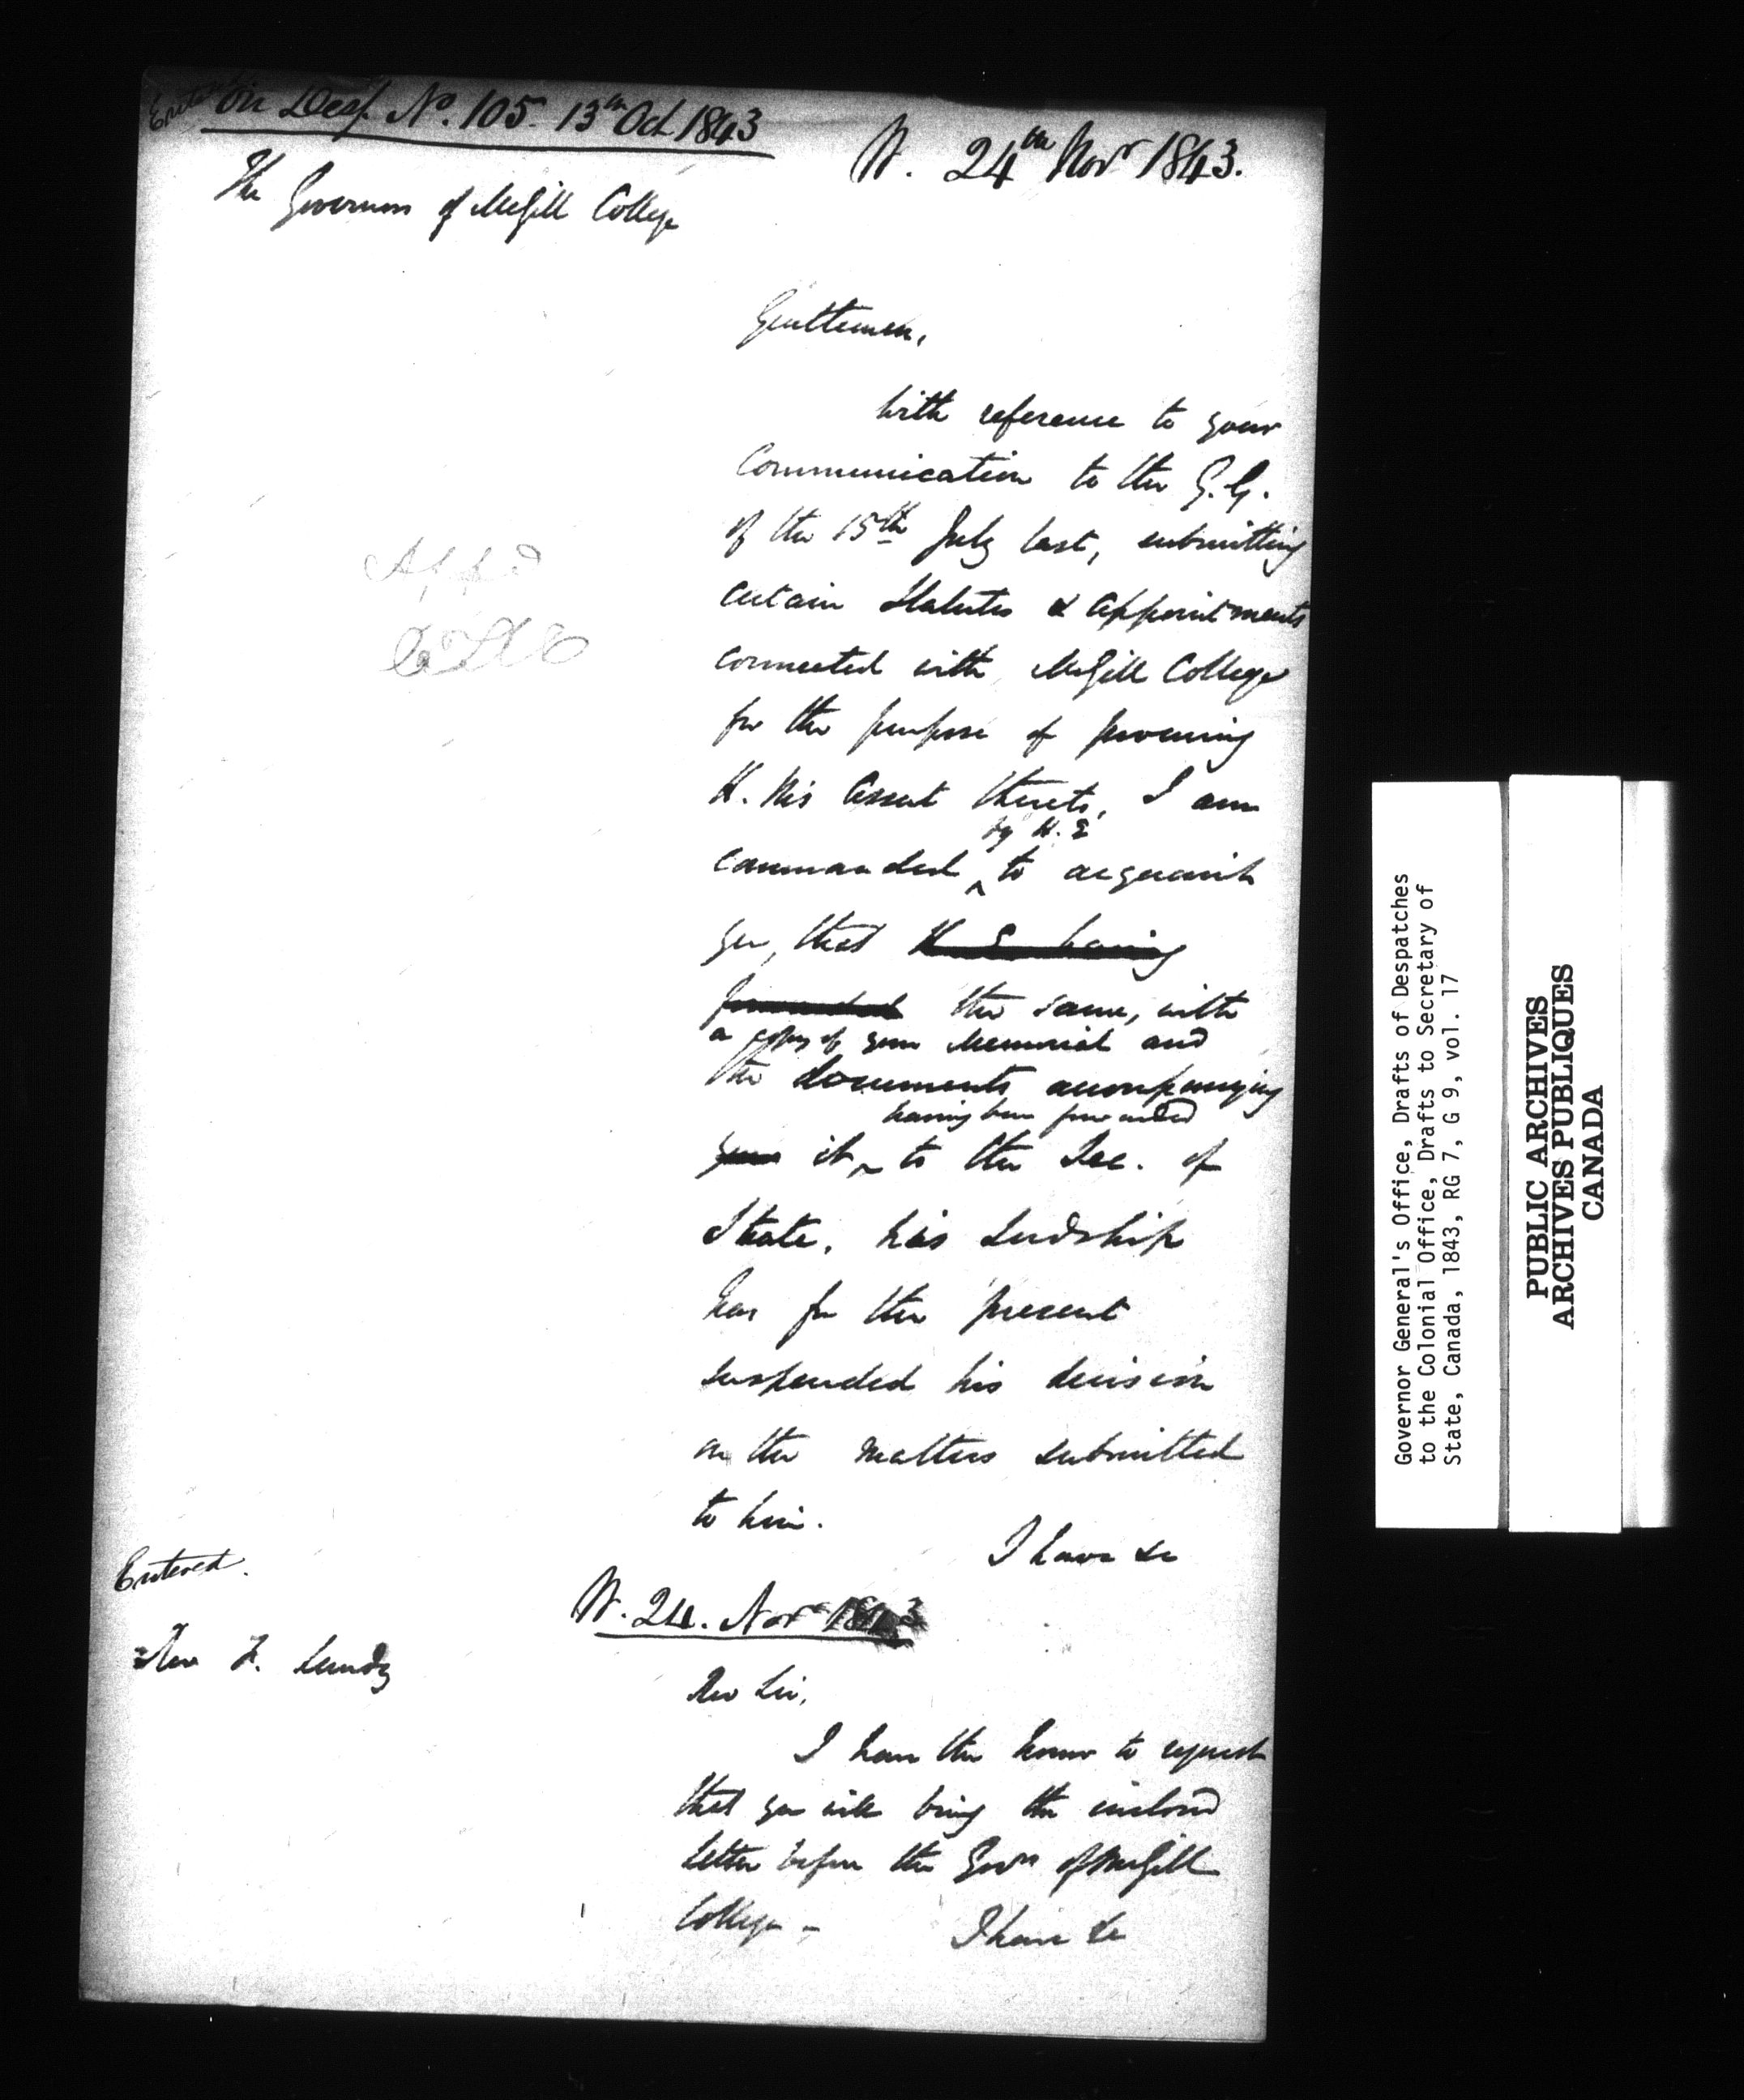 Entered
on Desp. No. 105. 13th Oct 1843
N. 24th Novr 1843.
The Governors of McGill College
Gentlemen,
With reference to your
Communication to the G.G.
of the 15th July last, submitting
certain Statutes & Appointments
connected with McGill College
for the purpose of procuring
H. M's Assent thereto, I am
by H. E
commanded ^ to acquaint
you, that H E having
forwarded the same, with
a copy of your Memorial and
the documents accompanying
having been forwarded
your it ^ to the Sec. of
State, his Lordship
has for the present
suspended his decision
on the matters submitted
to him.
I have &c
App'd
Entered.
N. 24. Novr 1843
Rev F. Lundy
Rev Sir,
I have the honor to request
that you will bring the enclosed
letter before the Govrs of McGill
College –
I have &c
Governor General's Office, Drafts of Despatches
to the Colonial Office, Drafts to Secretary of
State, Canada, 1843, RG 7, G 9, vol. 17
PUBLIC ARCHIVES
ARCHIVES PUBLIQUES
CANADA